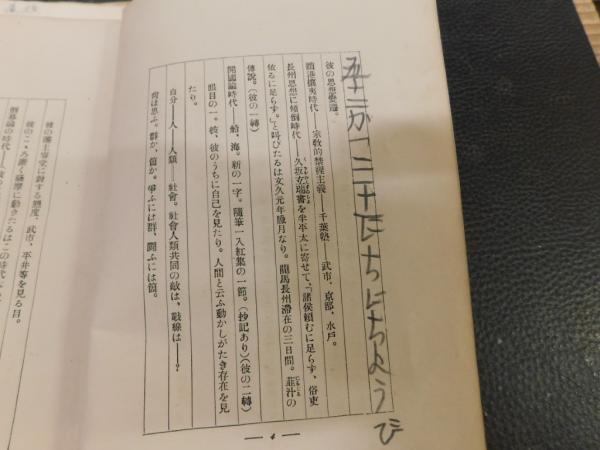 五十二が一二十にちにちようび
彼の思想變遷。
藩進攘夷時代――宗敎的禁淫主義――千葉塾――武市、京都、水戸。
長州思想に傾倒時代――久坂玄瑞書を半平太に寄せて、「諸侯賴むに足らず、俗吏
依るに足らず。」と叫びたるは文久元年臘月なり。龍馬長州滯在の三日間。韮汁の
傳說。(彼の一轉)
開國論時代――船、海。新の一字。隨筆一入紅集の一節。(抄記あり)(彼の二轉)
眼目の一。彼、彼のうちに自己を見たり。人間と云ふ動かしがたき存在を見
たり。
自分――人――人類――社會。社會人類共同の敵は、戰線は――?
荷は思ふ。群か、箇か。爭ふには群、鬪ふには箇。
― 4 ―
彼の藩主容堂に對する態度。武市、平井等を見る目。
彼のこゝろ潜く薩摩に動きたるはこの時代
倒幕論の時代